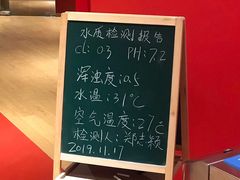 水质检测报告
cl: 0.3 PH: 7.2
浑浊度: 0.5
水温: 31℃
室合温度: 27℃
检测人: 郑志颖
2019.11.17